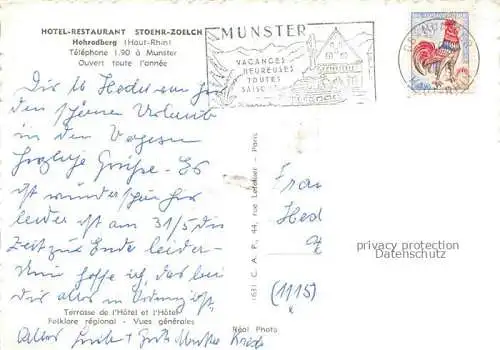 HOTEL-RESTAURANT STOEHR-ZOELCH
Hohrodberg (Haut-Rhin)
Téléphone 1.90 à Munster
Ouvert toute l'année
MUNSTER
VACANCES
HEUREUSES
TOUTES
SAISONS
Dir lb Hedel
den schönen Urlaub
in den Vogesen
herzliche Grüße - Es
ist wunderschön hier
leider ist am 31/5 die
Zeit zu Ende leider -
hoffe ich, das bei
dir alles in Ordnung ist,
Alles Liebe + Gute
Terrasse de l'Hôtel et l'Hôtel
Folklore régional - Vues générales
Réal Photo
1631 C. A. P., 44, rue Letellier - Paris
Frau
Hed
privacy protection
Datenschutz
(1115)